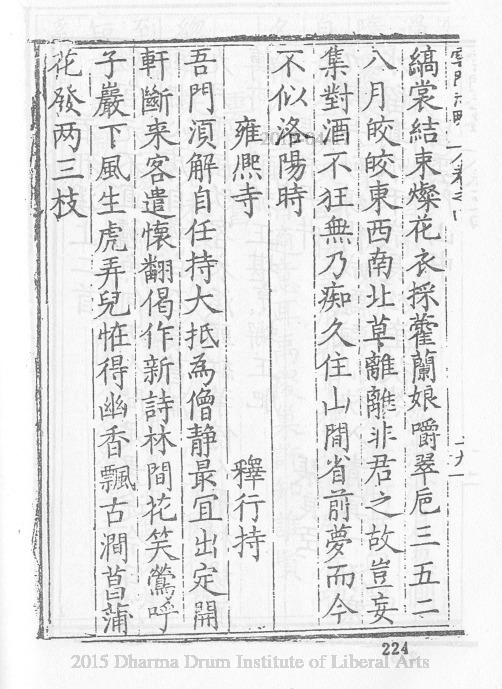 雲門志略 卷之
縞裳結束燦花衣採藿蘭娘嚼翠巵三五二
八月皎皎東西南北草離離非君之故豈妄
集對酒不狂無乃痴久住山間省前夢而今
不似洛陽時
雍熈寺 釋行持
吾門湏解自任持大抵為僧静最宜出定開
軒斷来客遣懷翻偈作新詩林間花笑鶯呼
子巖下風生虎弄兒恠得幽香飄古澗菖蒲
花發两三枝
224
2015 Dharma Drum Institute of Liberal Arts